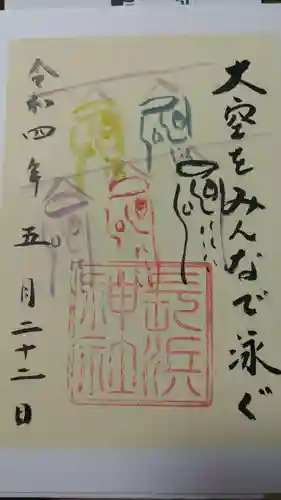 大空をみんなで泳ぐ
長浜
神社
令和四年五月二十二日